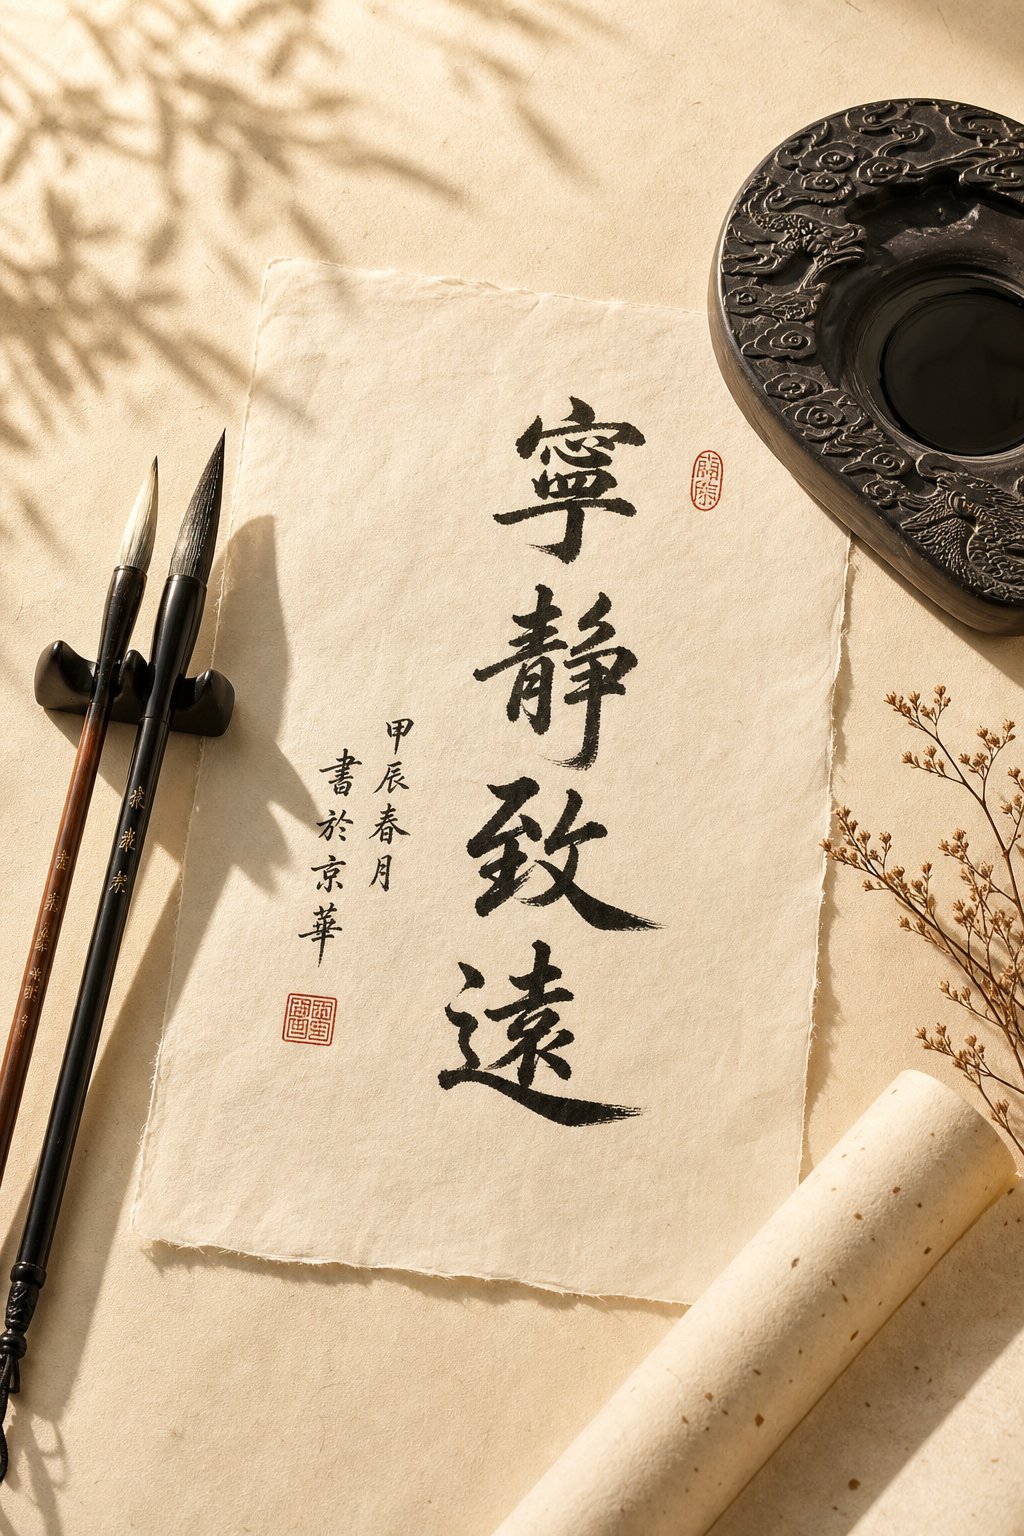 寧靜致遠
甲辰春月
書於京華